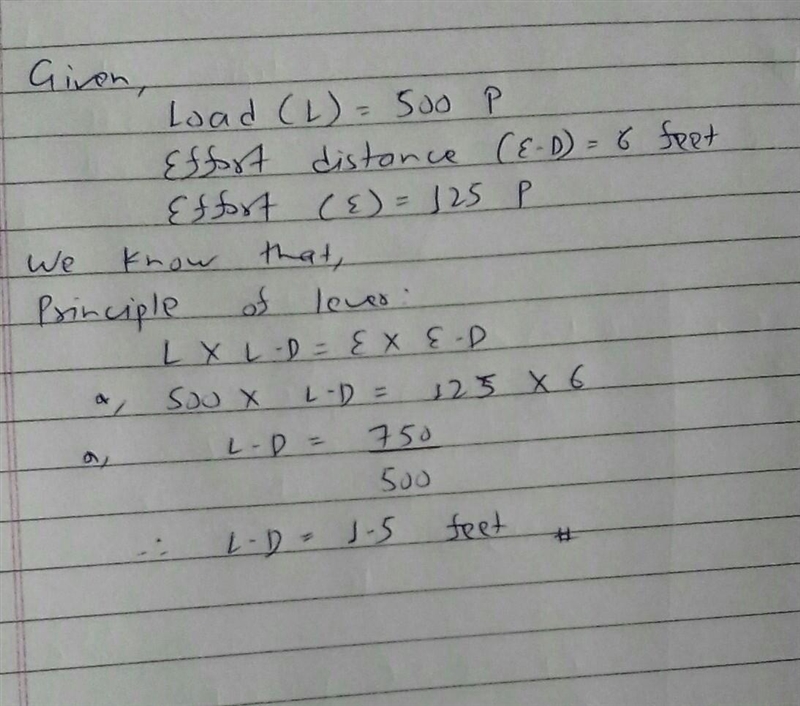 Given,
Load (L) = 500 P
Effort distance (E-D) = 6 feet
Effort (E) = 125 P
We know that,
Principle of lever:
L X L-D = E X E-D
or, 500 X L-D = 125 X 6
or, L-D = 750
500
∴ L-D = 1.5 feet #